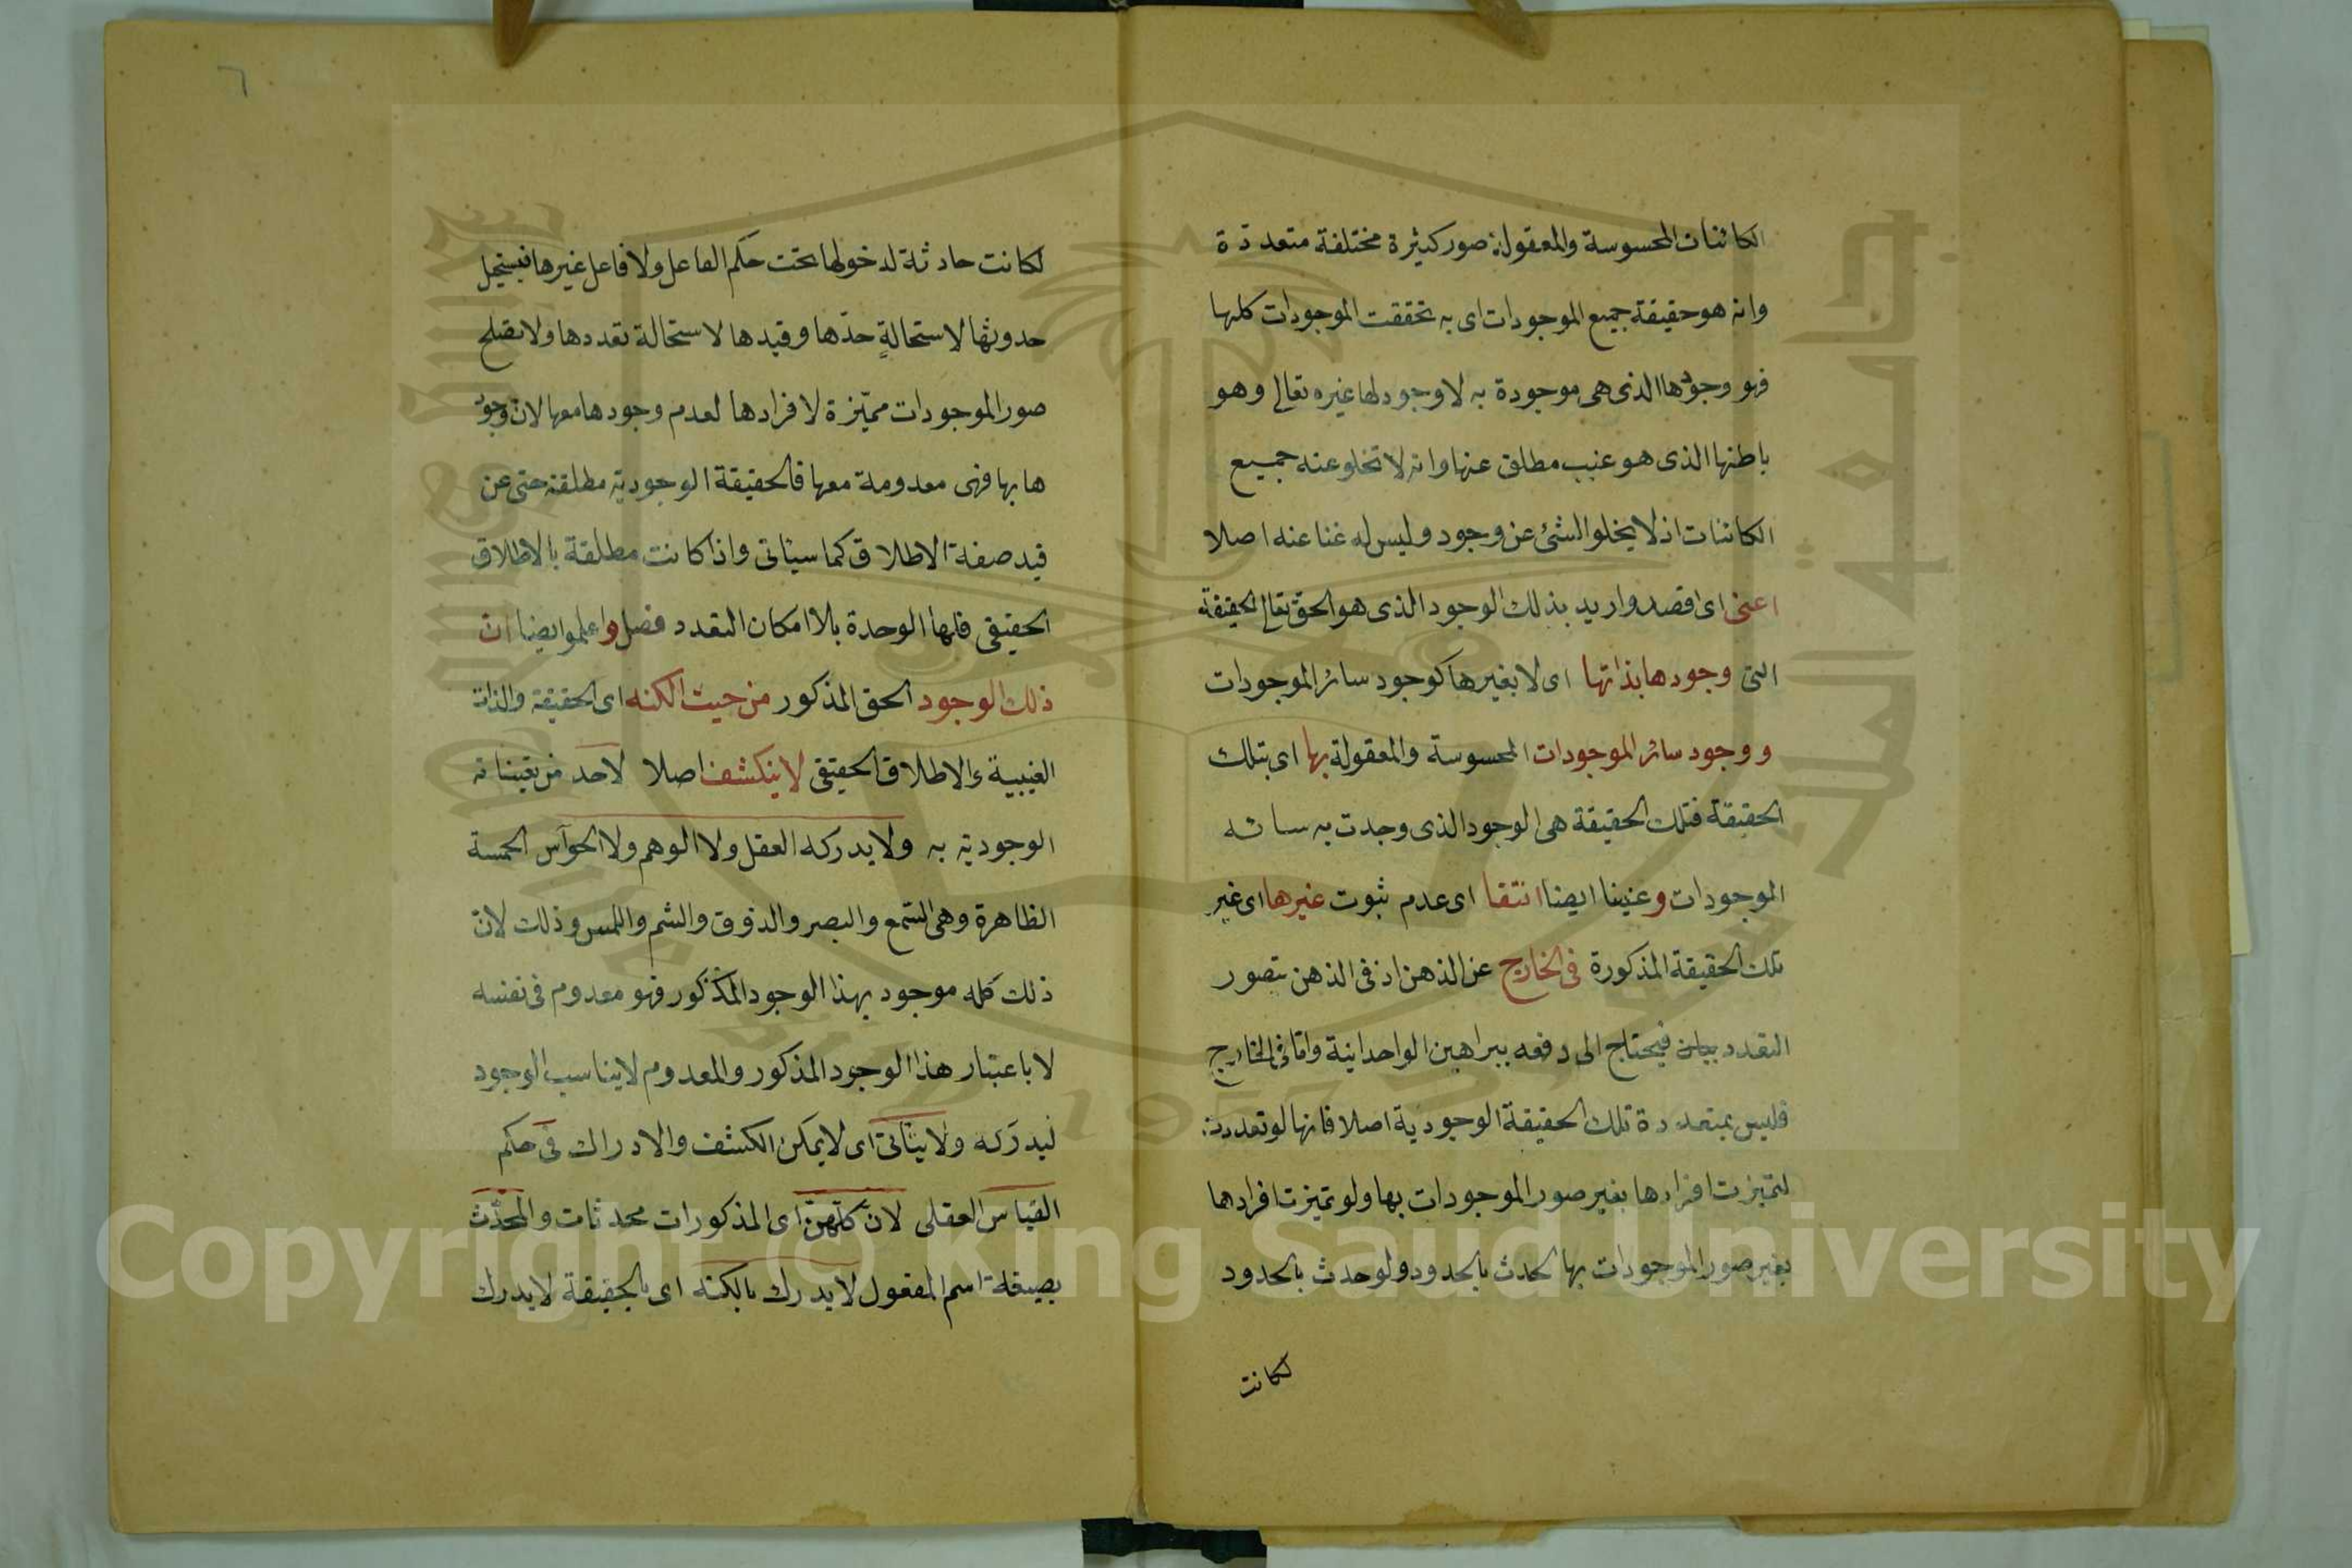 الكائنات المحسوسة والمعقولة صور كثيرة مختلفة متعددة
وانه هو حقيقة جميع الموجودات اى به تحققت الموجودات كلها
فهو وجودها الذى هى موجودة به لا وجود لها غيره تعالى وهو
باطنها الذى هو غيب مطلق عنها وانه لا تخلو عنه جميع
الكائنات اذ لا يخلو الشئ عن وجود وليس له غنا عنه اصلا
اعنى اى اقصد واريد بذلك الوجود الذى هو الحق تعالى الحقيقة
التى وجودها بذاتها اى لا بغيرها كوجود سائر الموجودات
ووجود سائر الموجودات المحسوسة والمعقولة بها اى بتلك
الحقيقة فتلك الحقيقة هى الوجود الذى وجدت به سائه
الموجودات وعنينا ايضا انتفا اى عدم ثبوت غيرها اى غير
تلك الحقيقة المذكورة فى الخارج عن الذهن اذ فى الذهن يتصور
التعدد فيحتاج الى دفعه ببراهين الواحدانية واما فى الخارج
فليس بمتعددة تلك الحقيقة الوجودية اصلا فانها لو تعددت
لتميزت افرادها بغير صور الموجودات بها ولو تميزت افرادها
بغير صور الموجودات بها لحدت بالحدود ولو حدث بالحدود
لكانت
٦
لكانت حادثة لدخولها تحت حكم الفاعل ولا فاعل غيرها فيستحيل
حدوثها لاستحالة حدّها وقيدها لاستحالة تعددها ولا تصلح
صور الموجودات مميّزة لافرادها لعدم وجودها معها لان وجود
ها بها فهى معدومة معها فالحقيقة الوجودية مطلقة حتى عن
قيد صفة الاطلاق كما سيأتى واذا كانت مطلقة بالاطلاق
الحقيقى فلها الوحدة بلا امكان التعدد فصل واعلموا ايضا ان
ذلك الوجود الحق المذكور من حيث الكنه اى الحقيقة والذات
الغيبية والاطلاق الحقيقى لا ينكشف اصلا لاحد من تعيناته
الوجودية به ولا يدركه العقل ولا الوهم ولا الحوآس الخمسة
الظاهرة وهى السّمع والبصر والذوق والشم واللمس وذلك لانّ
ذلك كله موجود بهذا الوجود المذكور فهو معدوم فى نفسه
لا باعتبار هذا الوجود المذكور والمعدوم لا يناسب الوجود
ليدركه ولا يتأتى اى لا يمكن الكشف والادراك فى حكم
القياس العقلى لانّ كلّهنّ اى المذكورات محدثات والمحدَث
بصيغة اسم المفعول لا يدرك بالكنه اى بالحقيقة لا يدرك
جامعة الملك سعود
King Saud University
1957
Copyright © King Saud University